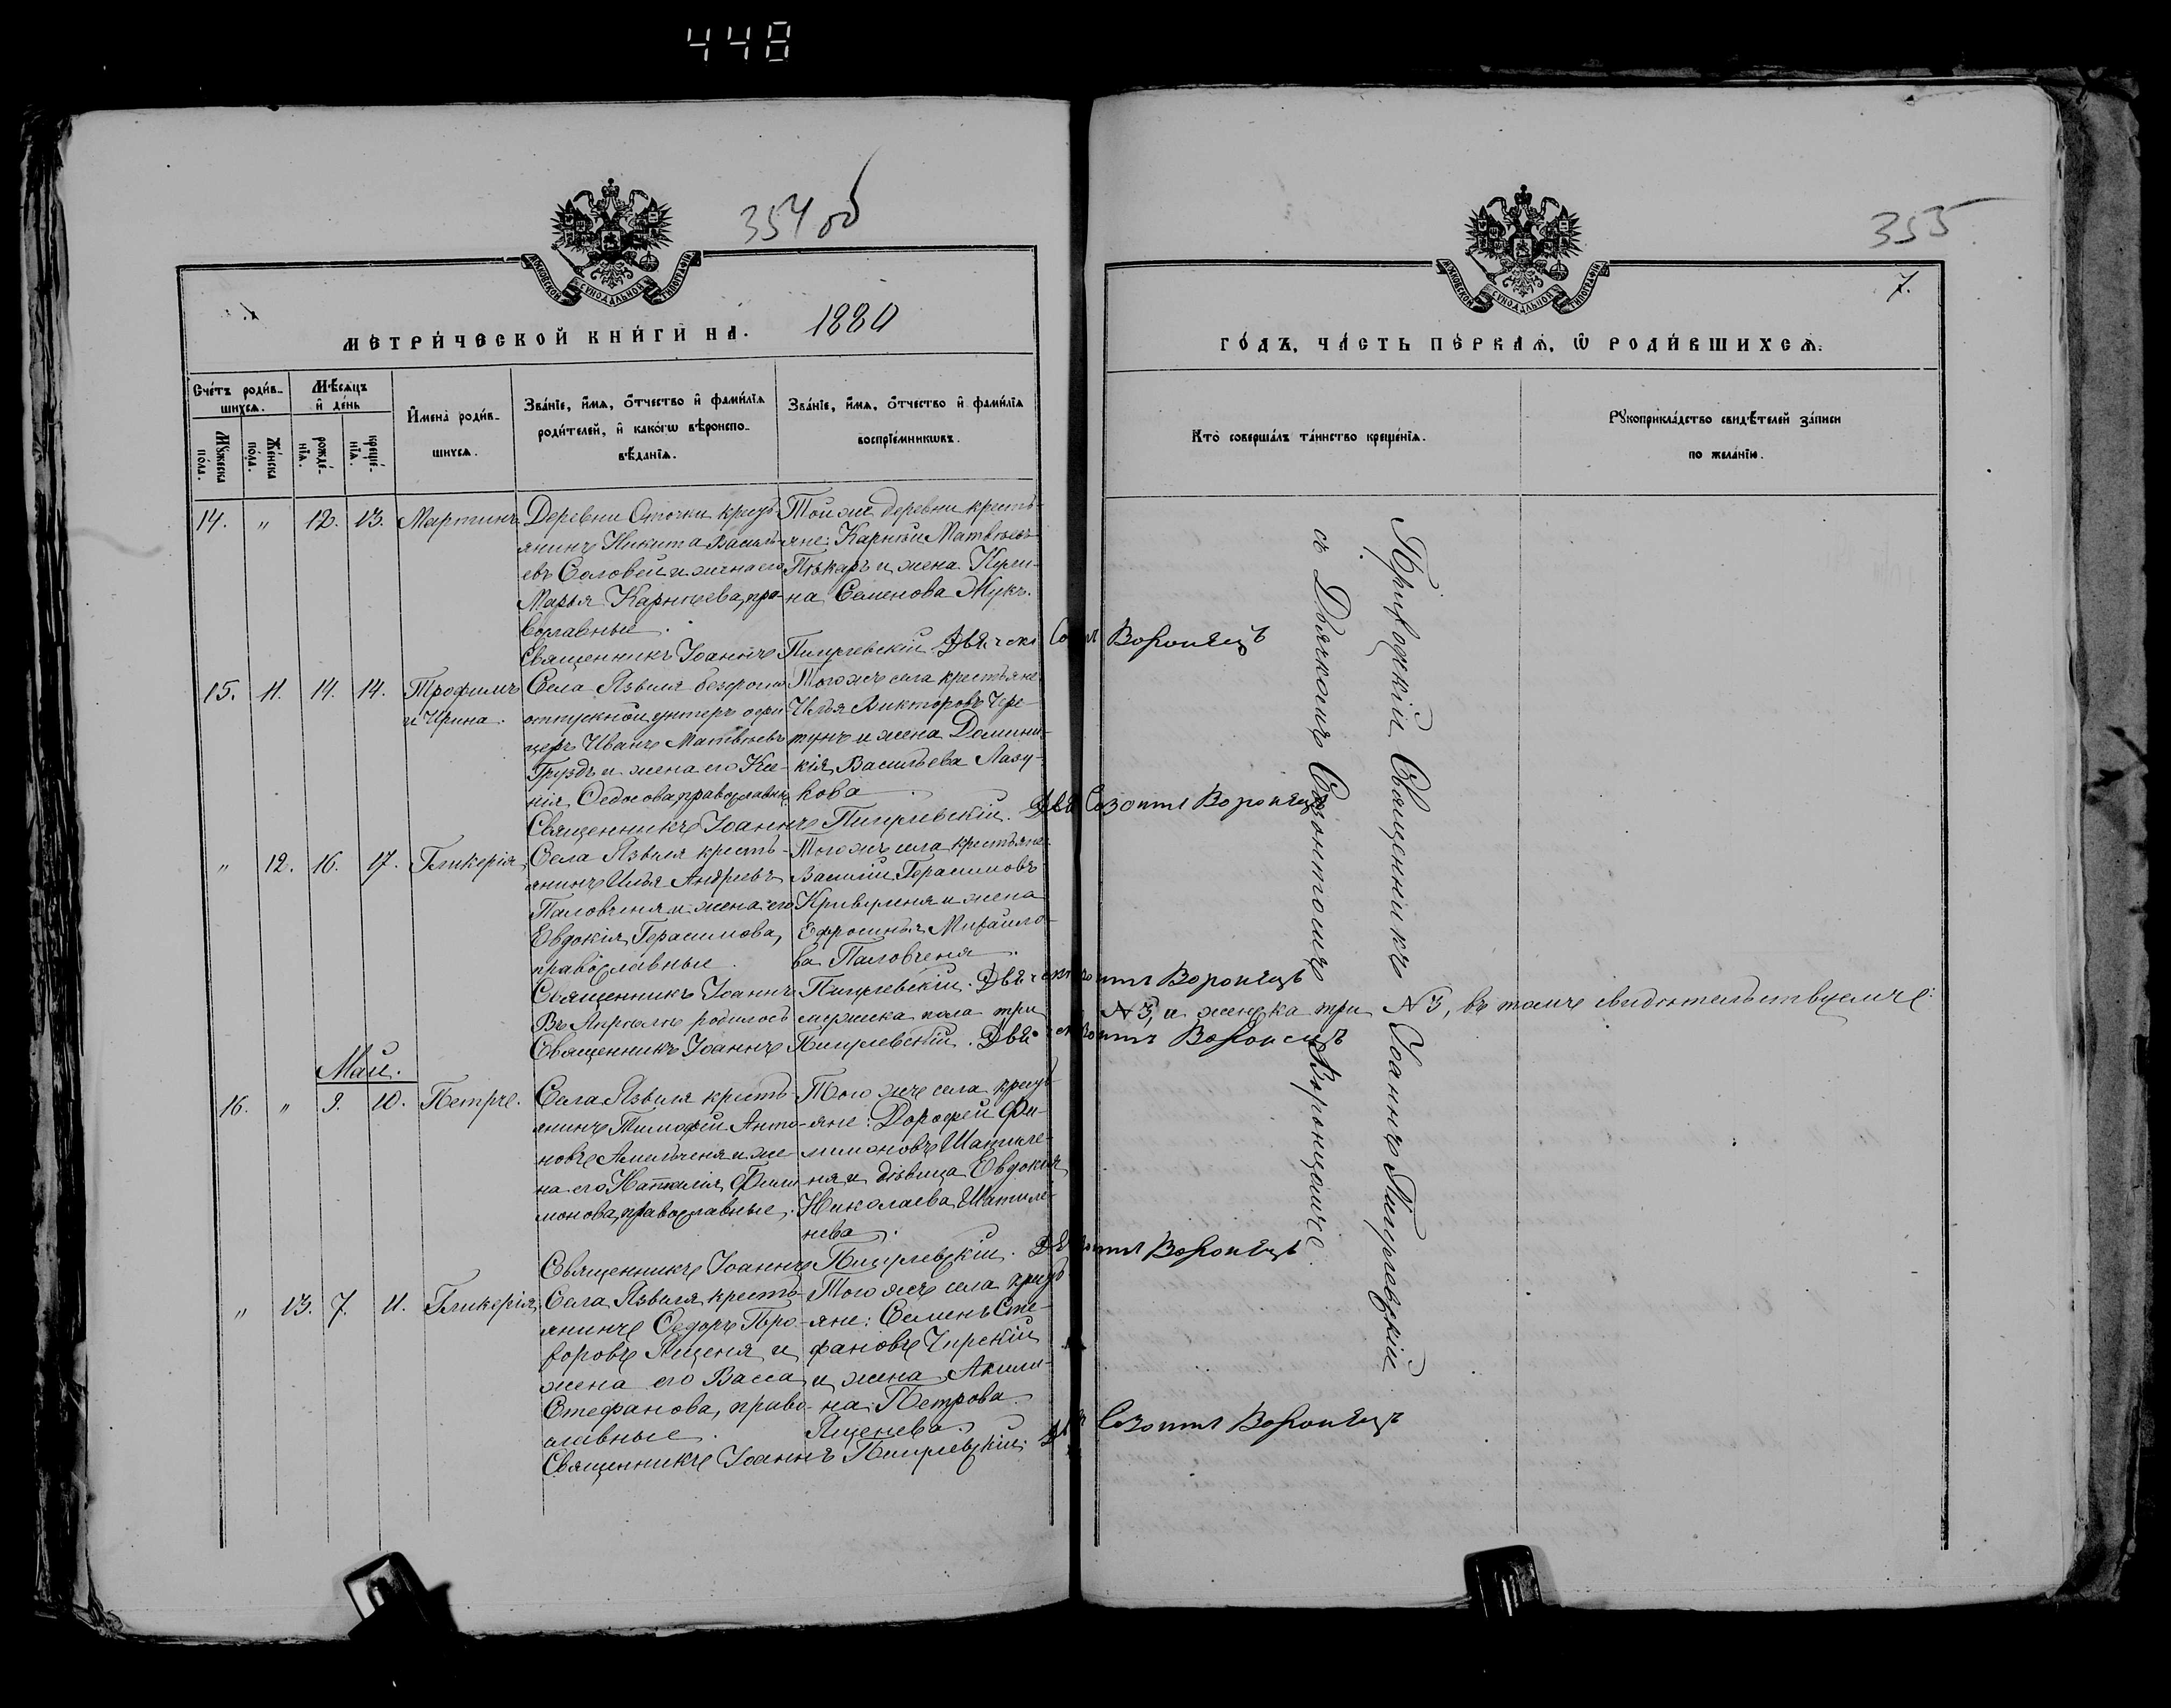 448
354 об
355
7.
МОСКОВСКОЙ СѴНОДАЛЬНОЙ ТИПОГРАФІИ
МОСКОВСКОЙ СѴНОДАЛЬНОЙ ТИПОГРАФІИ
МЕТРИ́ЧЕСКОЙ КНИ́ГИ НА. 1880
ГО́ДЪ, ЧА́СТЬ ПЕ́РВАѦ, Ѡ РОДИ́ВШИХСѦ.
Сче́тъ роди́в-
шихсѧ.
Мѣ́сѧцъ
и҆ де́нь
Мꙋ́жеска по́ла.
Же́нска по́ла.
рожде́-нїѧ.
креще́-нїѧ.
И҆мена̀ роди́в-
шихсѧ.
Зва́нїе, и҆́мѧ, ѻ҆́тчество и҆ фами́лїѧ
роди́телей, и҆ како́гѡ вѣроиспо-
вѣ́данїѧ.
Зва́нїе, и҆́мѧ, ѻ҆́тчество и҆ фами́лїѧ
воспрїе́мникѡвъ.
Кто̀ соверша́лъ та́инство креще́нїѧ.
Рꙋкоприкла́дство свидѣ́телей за́писи
по жела́нїю.
14. " 12. 13. Мартинъ
Деревни Оточки кресть-
янинъ Никита Василь-
евъ Соловей и жена его
Марья Карнѣева, пра-
вославные.
Той же деревни кресть-
яне: Карнѣй Матвѣевъ
Пѣкаръ и жена
на Семенова Жукъ.
Священникъ Іоаннъ Пигулевскій Дьячекъ Воронецъ
15. 11. 14. 14. Трофимъ
и Ирина.
Села Язвиля безсрочно
отпускной унтеръ офи-
церъ Иванъ Матвѣевъ
Груздъ и жена его Ксе-
нія Ѳедосова, православн.
Того же села крестьяне
Илья Викторовъ Чре-
тунъ и жена Домини-
кія Васильева Лазу-
кова.
Священникъ Іоаннъ Пигулевскій. Дья Созонтъ Воронецъ
" 12. 16. 17. Гликерія
Села Язвиля кресть-
янинъ Илья Андреевъ
Паловченя и жена его
Евдокія Герасимова,
православные.
Того же села крестьяне
Василій Герасимовъ
Кривуленя и жена
Ефросинья Михаило-
ва Паловченя.
Священникъ Іоаннъ Пигулевскій. Дьячекъ Созонтъ Воронецъ
Въ Апрѣлѣ родилось мужеска пола три №3, и женска три №3, въ томъ свидѣтельствуемъ:
Священникъ Іоаннъ Пигулевскій. Дьячекъ Созонтъ Воронецъ
Май.
16. " 9. 10. Петръ.
Села Язвиля кресть-
янинъ Тимофей Анто-
новъ Амельченя и же-
на его Наталія Фили-
монова, православные.
Того же села кресть-
яне: Дорофей Фи-
лимоновъ Шатиле-
ня и дѣвица Евдокія
Николаева Шатиле-
нева.
Священникъ Іоаннъ Пигулевскій. Созонтъ Воронецъ
" 13. 7. 11. Гликерія
Села Язвиля кресть-
янинъ Ѳедоръ
форовъ Яценя и
жена его Васса
Стефанова, право-
славные.
Того же села кресть-
яне: Семенъ Сте-
фановъ Чирскій
и жена Акили-
на Петрова
Яценева.
Священникъ Іоаннъ Пигулевскій. Созонтъ Воронецъ
Приходскій Священникъ Іоаннъ Пигулевскій
съ Дьячкомъ Созонтомъ Воронцомъ.